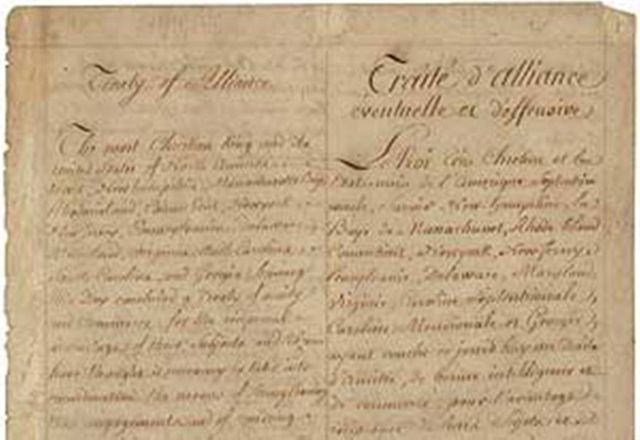 Treaty of Alliance
The most Christian King and the
united States of North America
Newhampshire, Massachusetts Bay
Rhodeisland, Connecticut, Newyork
New Jersey, Pennsylvania, Delaware
Maryland, Virginia, North Carolina
South Carolina, and Georgia having
this Day concluded a Treaty of amity
and Commerce, for the reciprocal
advantage of their Subjects and Citizens
have thought it necessary to take into
consideration the means of strengthening
those engagements and of rendring
Traité d'alliance
eventuelle et deffensive
Le Roi très Chretien et les
Etats unis de l'Amerique septentrio
New hampshire, la
Baye de Massachusset, Rhode island
Connecticut, Newyork, New Jersey
Pensylvanie, Delaware, Maryland
Virginie, Caroline septentrionale,
Caroline Meridionale et Georgie,
ayant conclu ce jourd'huy un Traité
d'amitié, de bonne intelligence et
de commerce, pour l'avantage
de leurs Sujets et